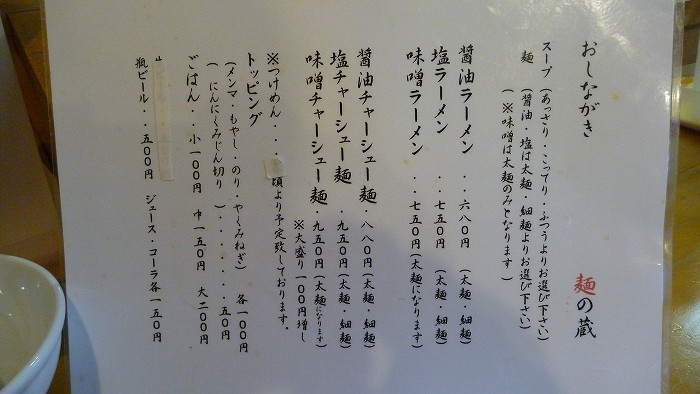 おしながき
麺の蔵
スープ (あっさり・こってり・ふつうよりお選び下さい)
麺 (醤油・塩は太麺・細麺よりお選び下さい)
(※味噌は太麺のみとなります)
醤油ラーメン ・・六八〇円 (太麺・細麺)
塩ラーメン ・・七五〇円 (太麺・細麺)
味噌ラーメン ・・七五〇円(太麺になります)
醤油チャーシュー麺・八八〇円(太麺・細麺)
塩チャーシュー麺・九五〇円(太麺・細麺)
味噌チャーシュー麺・九五〇円(太麺になります)
※大盛り一〇〇円増し
※つけめん・・・頃より予定致しております。
トッピング
(メンマ・もやし・のり・やくみねぎ) 各一〇〇円
(にんにくみじん切り)・・・・・・五〇円
ごはん・・小一〇〇円 中一五〇円 大二〇〇円
瓶ビール・・・五〇〇円 ジュース・コーラ各一五〇円